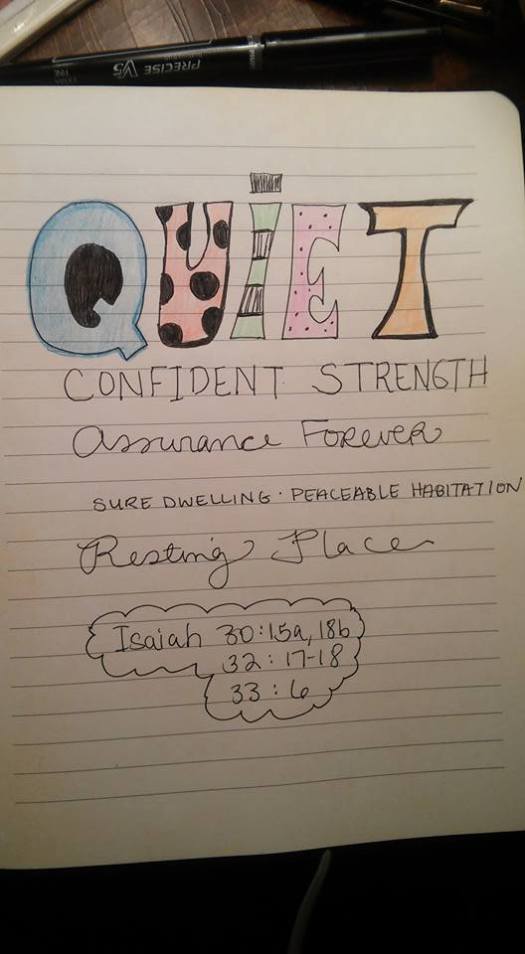 PRECISE V5
QUiET
CONFIDENT STRENGTH
Assurance Forever
SURE DWELLING · PEACEABLE HABITATION
Resting Place
Isaiah 30:15a, 18b
32:17-18
33:6